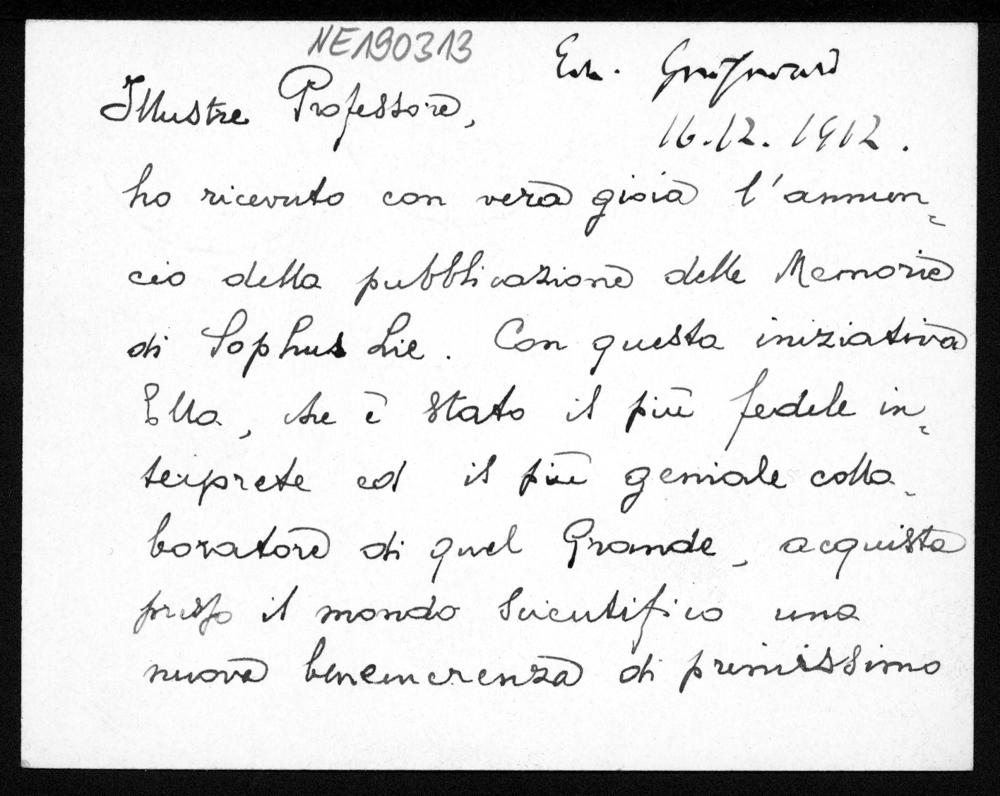 NE190313
16.12.1912.
Illustre Professore,
ho ricevuto con vera gioia l'annun=
cio della pubblicazione delle Memorie
di Sophus Lie. Con questa iniziativa
Ella, che è stato il più fedele in=
terprete ed il più geniale colla-
boratore di quel Grande, acquista
presso il mondo scientifico una
nuova benemerenza di primissimo